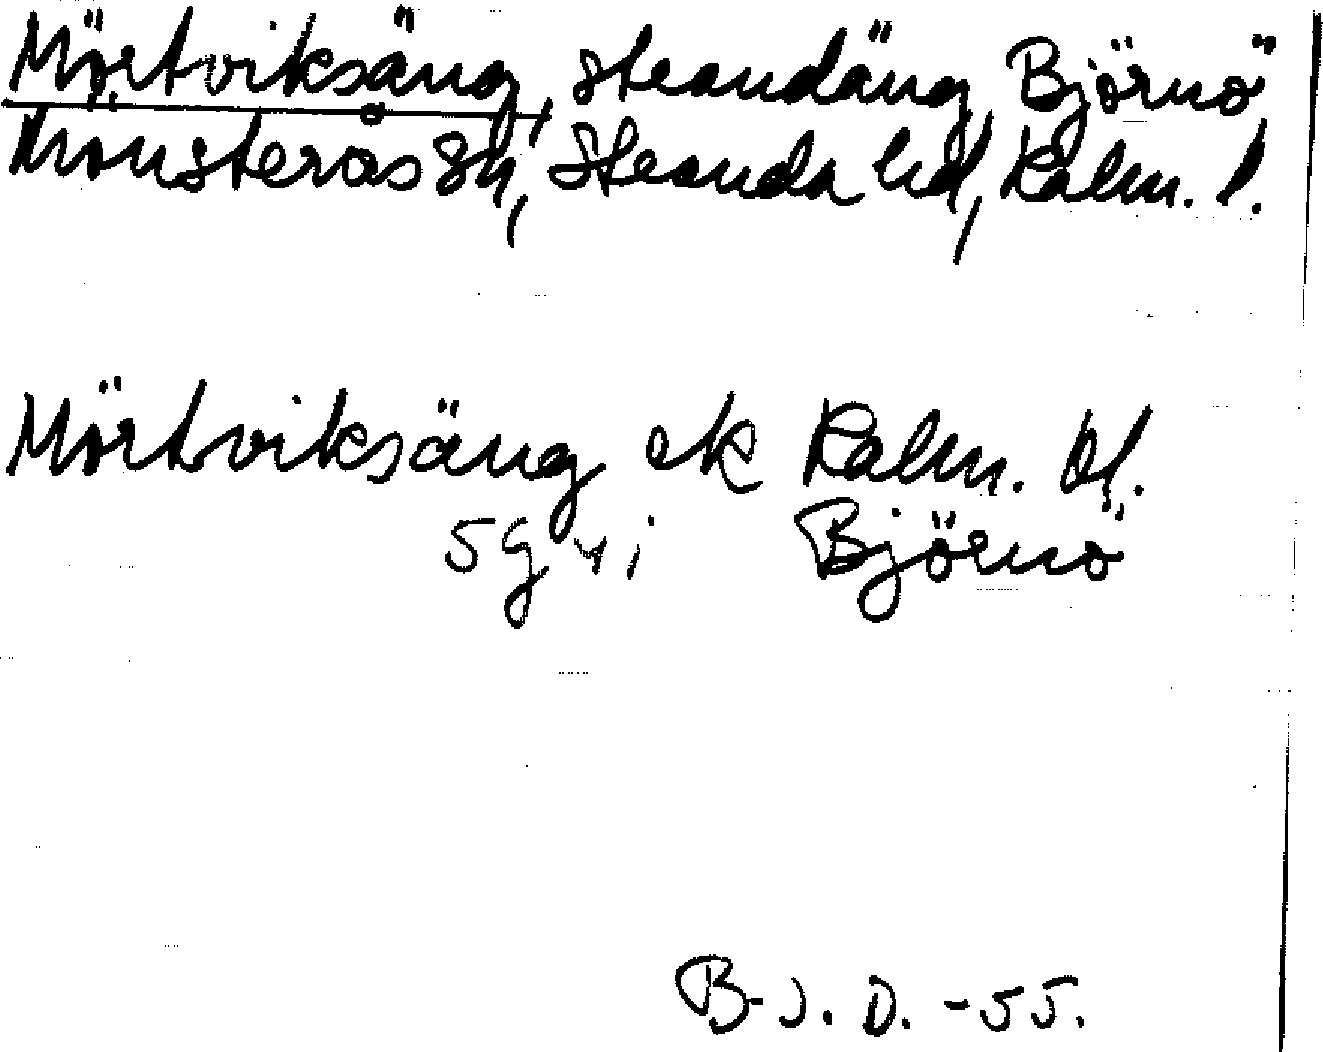 Mörtviksäng, strandäng, Björnö
Mönsterås sn, Stranda hd, Kalm. l.
Mörtviksäng ek Kalm. bl.
5g 4i Björnö
B.J.D. -55.